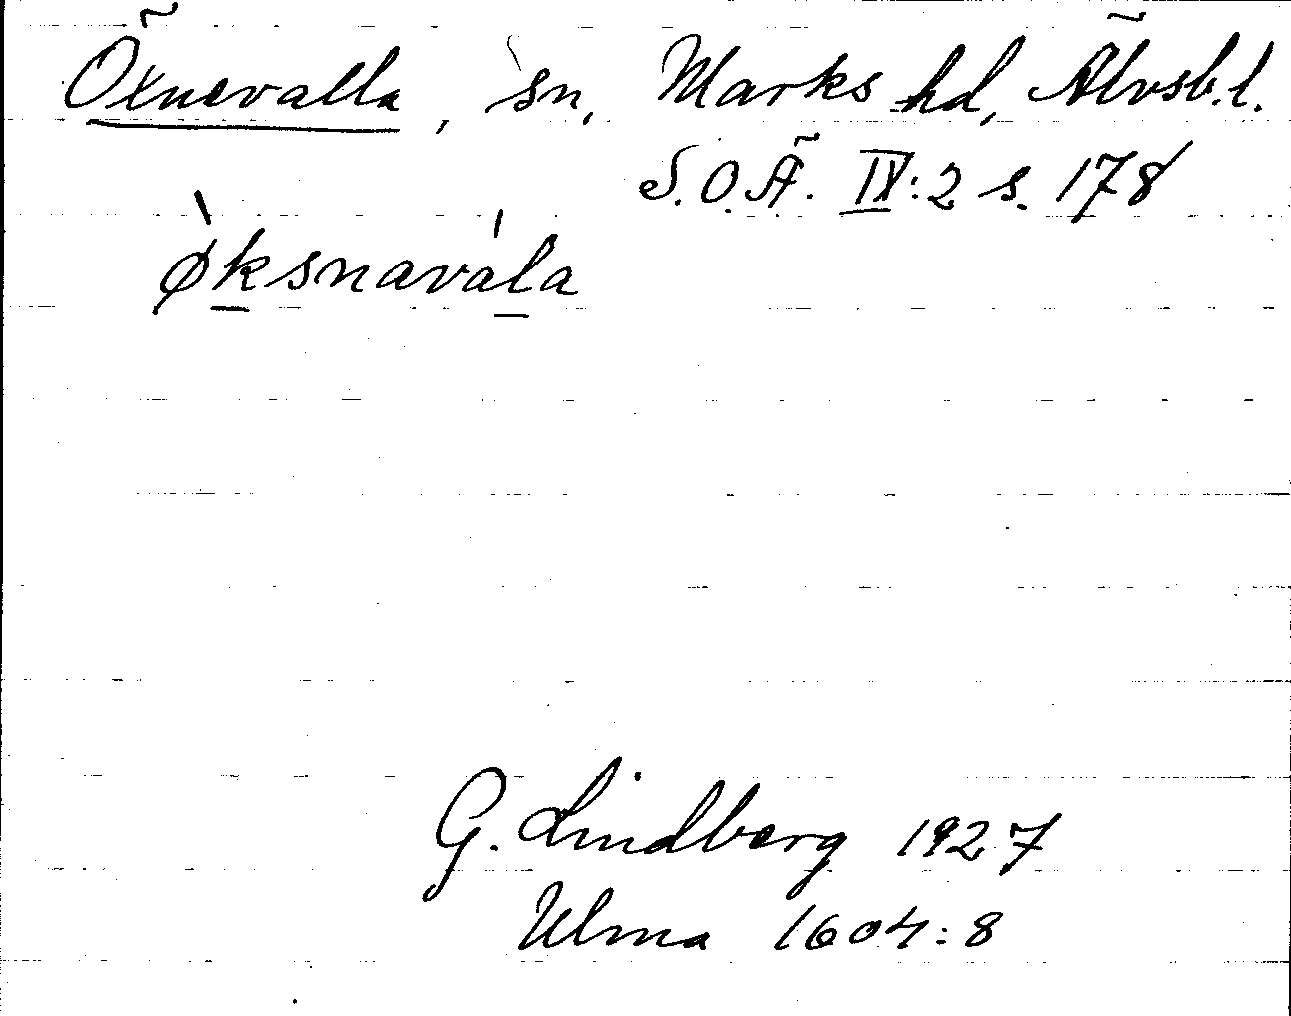 Öxnevalla, sn, Marks hd, Älvsb.l.
S.O.Ä. IV:2 s. 178
`øksnava´la
G. Lindberg 1927
Ulma 1604:8